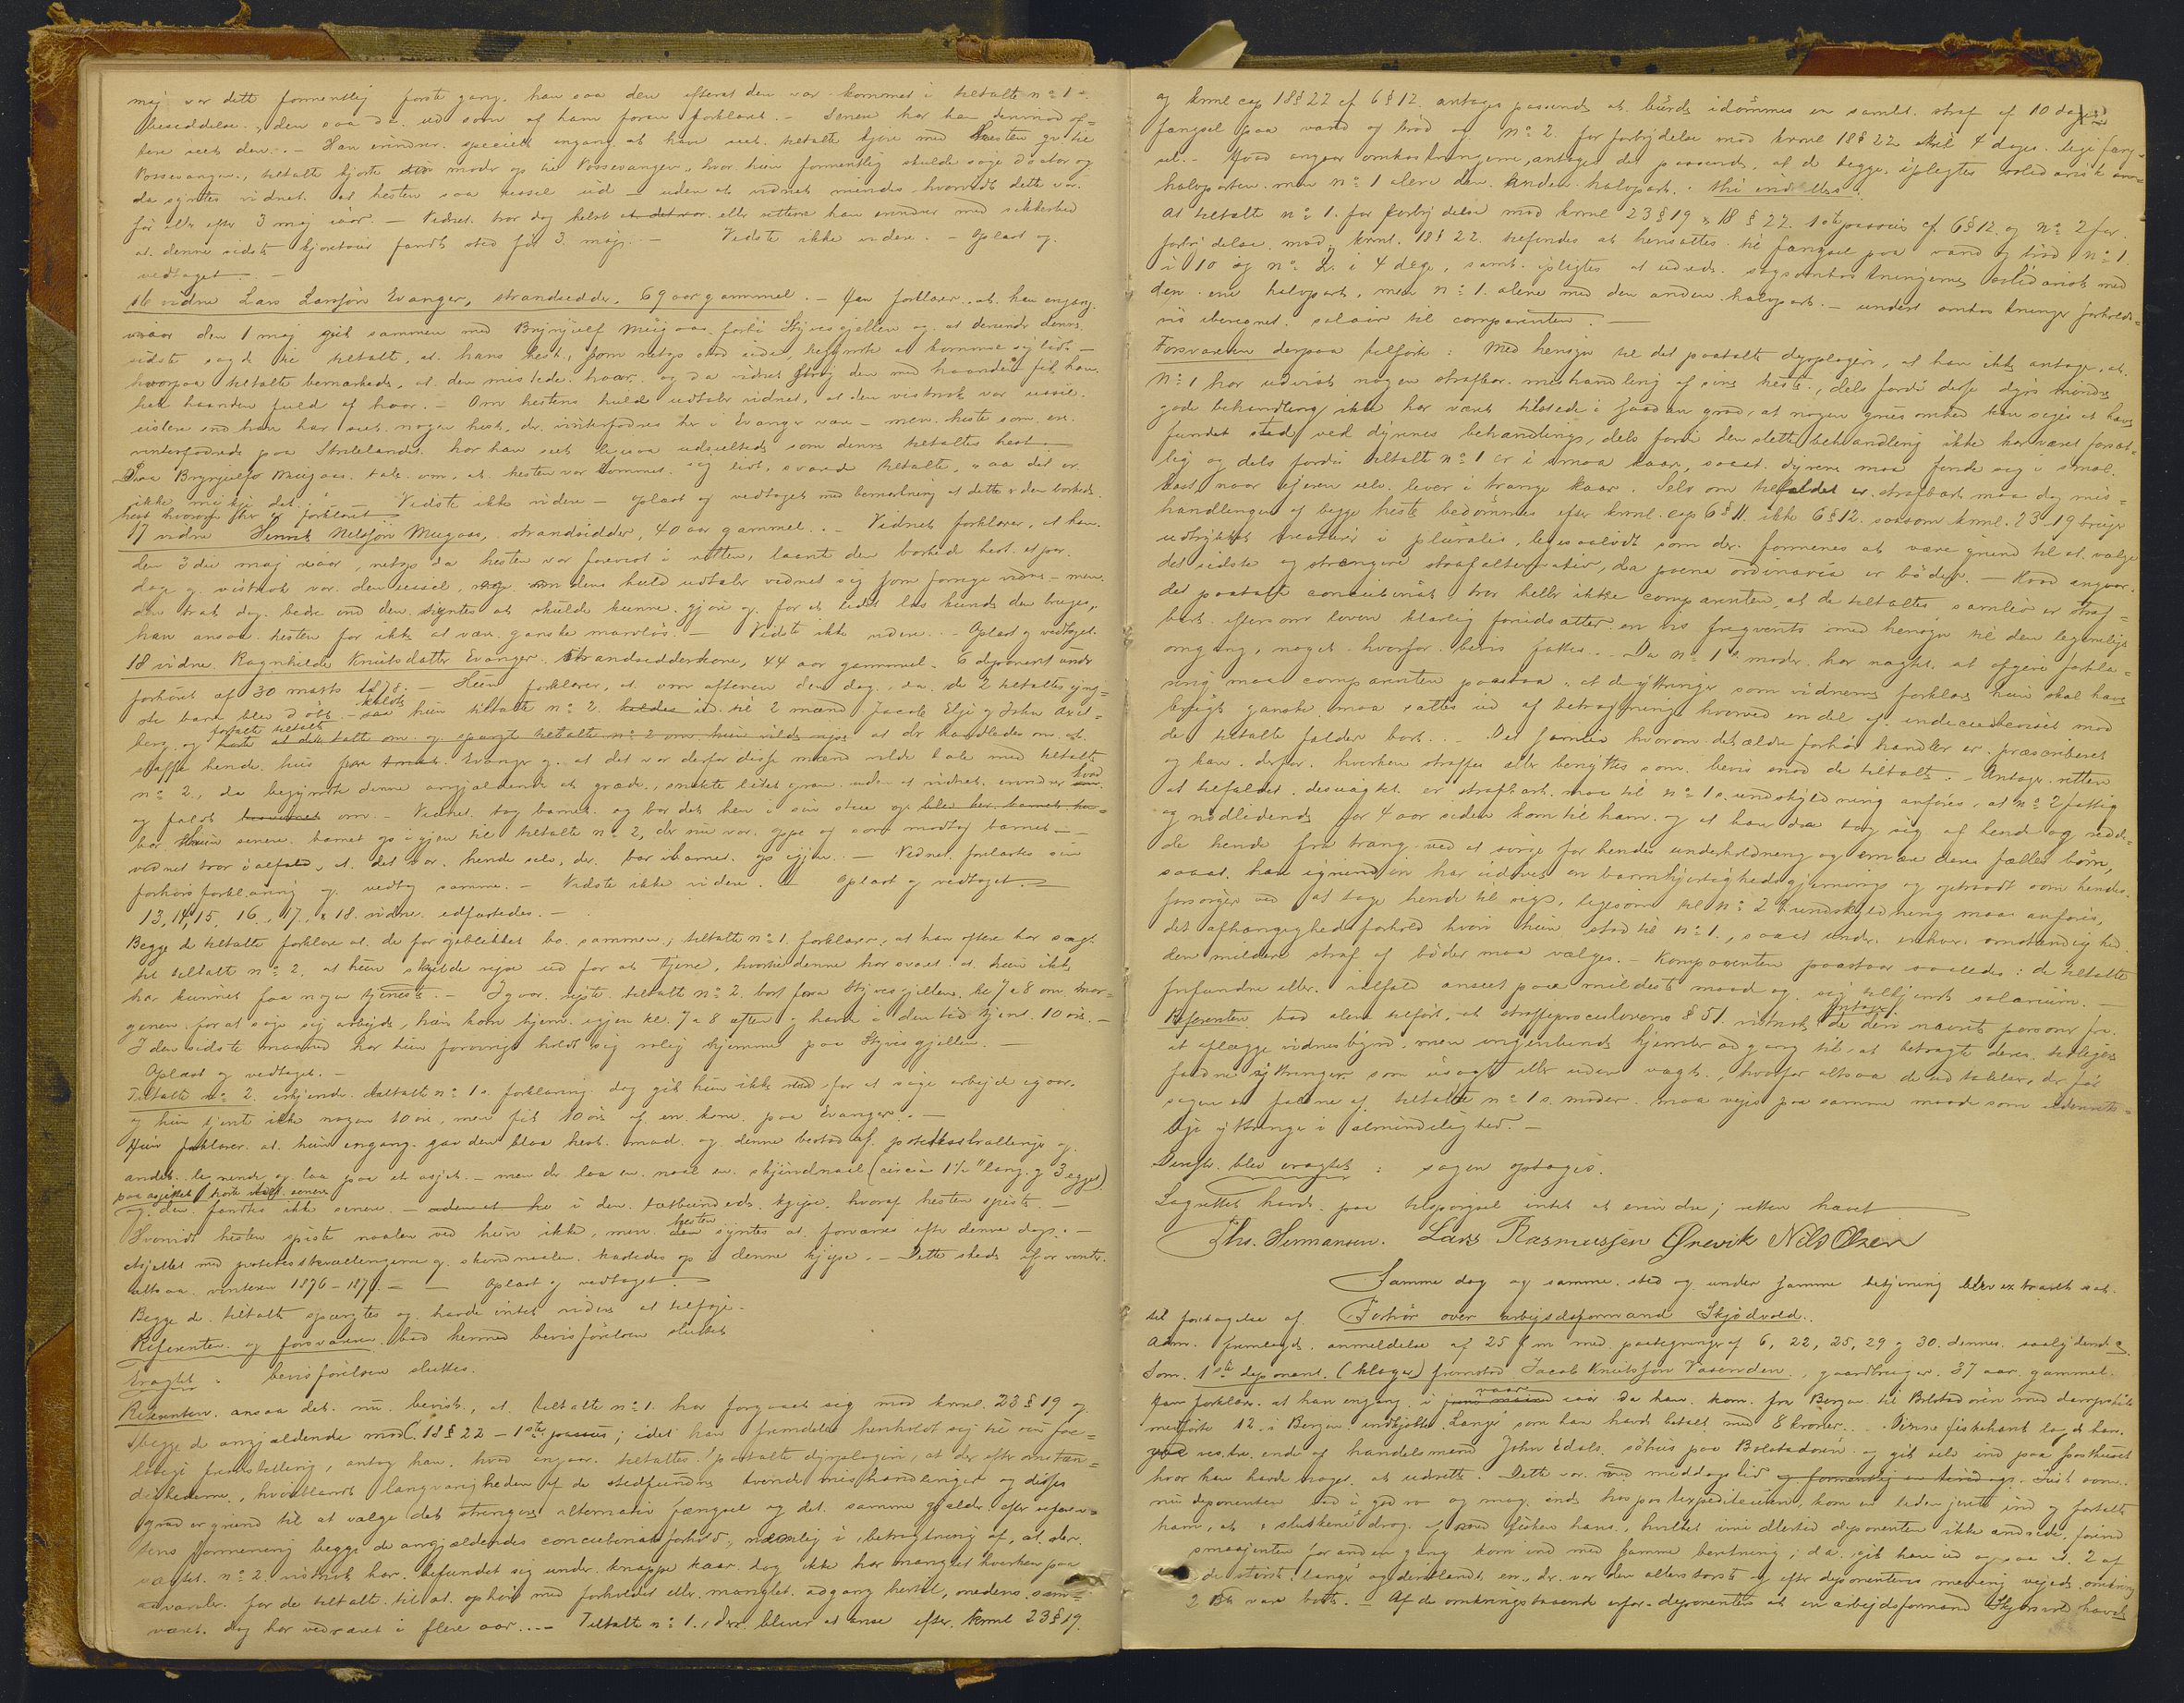 maj var dette formentlig første gang han saa den efterat den var kommet i tiltalte nº 1s
besiddelse, den saa da ud som af ham foran forklaret. – Senere har han derimod of-
tere seet den. – Han erindrer specielt engang at han seet tiltalte kjøre med hesten gr. til
Vossevangen, tiltalte kjørte sin moder op til Vossevangen, hvor hun formentlig skulde søge doctor og
da syntes vidnet at hesten saa ussel ud – uden at vidnet mindes hvorvidt dette var
før eller efter 3 maj iaar. – Vidnet tror dog helst at det var eller rettere han erindrer med sikkerhed
at denne sidste kjøretour fandt sted før 3. maj. – Vidste ikke videre. – Oplæst og
vedtaget. –
16 vidne Lars Larssøn Evanger, strandsidder, 69 aar gammel. – Han forklarer, at han engang
iaar den 1 maj gik sammen med Brynjulf Mugaas forbi Styvesgjellen og at derunder denne
sidste sagde til tiltalte, at hans hest, som netop stod ude, begyndte at komme sig lidt –
hvorpaa tiltalte bemærkede, at den mistede haar og da vidnet strøg den med haanden fik han
hel haanden fuld af haar. – Om hestens huld udtaler vidnet, at den vistnok var ussel
uslere end han har seet nogen hest, der vinterfødres her i Evanger være – men heste som ere
vinterfødrede paa Strilelandet har han seet ligesaa udsultede som denne tiltaltes hest
Paa Brynjulfs Mugaas tale om, at hesten var kommet sig lidt, svarede tiltalte, "aa det er
ikke mykje det." Vidste ikke videre – oplæst og vedtaget med bemærkning at dette er den borkede
hest hvorom her er forklaret
17 vidne Henrik Nelssøn Mugaas, strandsidder, 40 aar gammel. – Vidnet forklarer, at han
den 3die maj iaar, netop da hesten var foreviist i retten, laante den borkede hest et par
dage og vistnok var den ussel, om dens huld udtaler vidnet sig som forrige vidne – men
den trak dog bedre end den syntes at skulde kunne gjøre og for et lidet læs kunde den bruges,
han ansaa hesten for ikke at være ganske marvløs. – Vidste ikke videre. – Oplæst og vedtaget.
18 vidne Ragnhilde Knutsdatter Evanger strandsidderkone, 44 aar gammel. 6 deponent under
forhøret af 30 marts 1878. – Hun forklarer, at om aftenen den dag, da de 2 tiltaltes yng-
ste barn blev døbt – kaldte hun tiltalte nº 2 ud til 2 mænd Jacob Elje og John Axel-
berg og fortalte tiltalte at der handledes om at
skaffe hende hus paa Evanger og at det var derfor disse mænd vilde tale med tiltalte
nº 2, da begyndte denne angjældende at græde, snakte lidet grann uden at vidnet erindrer hvad
og faldt om. – Vidnet tog barnet og bar det hen i sin stue og
bar hun senere barnet op igjen til tiltalte nº 2, der nu var oppe og som modtog barnet –
vidnet tror ialfald, at det var hende selv, der bar barnet op igjen. – Vidnet forelæstes sin
forhørsforklaring og vedtog samme. – Vidste ikke videre. – Oplæst og vedtaget. –
13, 14, 15, 16, 17, & 18 vidne edfæstedes. –
Begge de tiltalte forklare at de for øieblikket bo sammen, tiltalte nº 1. forklarer, at han oftere har sagt
til tiltalte nº 2. at hun skulde rejse ud for at tjene, hvortil denne har svaret at hun ikke
har kunnet faa nogen tjeneste. – Igaar rejste tiltalte nº 2 bort fra Styvesgjellen kl 7 a 8 om mor-
genen for at søge sig arbejde, hun kom hjem igjen kl. 7 a 8 aften og havde i den tid tjent 10 øre. –
I den sidste maaned har hun forøvrigt holdt sig rolig hjemme paa Styvesgjellen. –
Oplæst og vedtaget. –
Tiltalte nº 2. erkjendte tiltalte nº 1s forklaring dog gik hun ikke ud for at søge arbejde igaar.
og hun tjente ikke nogen 10 øre, men fik 10 øre af en kone paa Evanger. –
Hun forklarer at hun engang gav den blaa hest mad og denne bestod af potetesskrællinger og
andet lignende og laa paa et asjet – men der laa en naal en skjindnaal (circa 1½" lang og 3 egget)
paa asjettet
og den fandtes ikke senere – i den tætbundede kjipe, hvoraf hesten spiste. –
Hvorvidt hesten spiste naalen ved hun ikke, men hesten syntes at forværres efter denne dag. –
Asjettet med potetesskrællingerne og skindnaalen kastedes op i denne kjipe. – Dette skede ifjor vinter
altsaa vinteren 1876–1877. – Oplæst og vedtaget.
Begge de tiltalte spurgtes og havde intet videre at tilføje.
Referenten og forsvareren bad hermed bevisførelsen sluttet
Eragtet: bevisførelsen sluttes.
Referenten ansaa det nu bevist, at tiltalte nº 1. har forgaaet sig mod krml. 23 § 19 og
begge de angjældende mod C. 18 § 22 – 1ste passus; idet han fremdeles henholdt sig til sin fore-
løbige fremstilling, antog han, hvad angaar tiltaltes paatalte dyrplageri, at der efter omstæn-
dighederne, hvoriblandt langvarigheden af de stedfundne tvende mishandlinger og disses
grad er grund til at vælge det strengere alternativ fængsel og det samme gjælder efter referen-
tens formening begge de angjældendes concubinatforhold, nemlig i betragtning af, at der,
uagtet nº 2 vistnok har befundet sig under knappe kaar dog ikke har manglet hverken paa
advarsler for de tiltalte til at ophøre med forholdet eller manglet adgang hertil, medens sam-
været dog har vedvaret i flere aar. – Tiltalte nº 1., der bliver at anse efter krml 23 § 19
og krml cap 18 § 22 cf 6 § 12 antages passende at burde idømmes en samlet straf af 10 dages
fængsel paa vand og brød og nº 2. for forbrydelse mod krml 18 § 22 til 4 dages lige fæng-
sel. – Hvad angaar omkostningerne, antages det passende, at de begge ipligtes solidarisk den ene
halvparten men nº 1 alene den anden halvpart. Thi indstilles:
At tiltalte nº 1. for forbrydelse mod krml 23 § 19 & 18 § 22 1ste passus cf. 6 § 12 og nº 2 for
forbrydelse mod krml. 18 § 22 tilfindes at hensættes til fængsel paa vand og brød nº 1
i 10 og nº 2. i 4 dage, samt ipligtes at udrede sagsomkostningerne solidarisk med
den ene halvpart, men nº 1. alene med den anden halvpart. – under omkostninger forholds-
vis iberegnet salair til comparenten. –
Forsvareren derpaa tilførte: Med hensyn til det paatalte dyrplageri, at han ikke antager, at
nº 1 har udvist nogen strafbar mishandling af sine heste, dels fordi disse dyrs mindre
gode behandling ikke har været tilstede i saadan grad, at nogen grusomhed kan siges at have
fundet sted ved dyrenes behandling, dels fordi den slette behandling ikke har været forsæt-
lig og dels fordi tiltalte nº 1 er i smaa kaar, saaat dyrene maa finde sig i smal-
kost, naar ejeren selv lever i trange kaar. Selv om tilfældet er strafbart maa dog mis-
handlingen af begge heste bedømmes efter krml. cap 6 § 11 ikke 6 § 12. saasom krml. 23–19 bruger
udtrykket creaturer i pluralis, ligesaalidt som der formenes at være grund til at vælge
det sidste og strængere strafalternativ, da poena ordinaria er bøder. – Hvad angaar
det paatalte concubinat tror heller ikke comparenten, at de tiltaltes samliv er straf-
bart eftersom loven klarlig forudsætter en vis freqvents med hensyn til den legemlige
omgang, noget hvorfor bevis fattes. – Da nº 1s moder har nægtet at afgive forkla-
ring maa comparenten paastaa, at de yttringer som vidnerne forklare hun skal have
brugt ganske maa sættes ud af betragtning hvorved en del af indicierne mod
de tiltalte falder bort. – Det samliv hvorom det ældre forhør handler er præscriberet
og kan derfor hverken straffes eller benyttes som bevis mod de tiltalte. – Antager retten
at tilfældet desuagtet er strafbart maa til nº 1s undskyldning anføres, at nº 2 fattig
og nødlidende for 4 aar siden kom til ham og at han da tog sig af hende og redde-
de hende fra trang ved at sørge for hendes underholdning og deres fælles børn,
saaat han igrunden har udøvet en barmhjertighedsgjerning og optraadt som hendes
forsørger ved at tage hende til sig, ligesom til nº 2s undskyldning maa anføres,
det afhængighedsforhold hvori hun stod til nº 1., saaat under enhver omstændighed
den mildere straf af bøder maa vælges. – Komparenten paastaar saaledes: de tiltalte
frifundne eller ialfald anseet paa mildeste maade og sig tilkjendt salarium. –
Referenten bad alene tilført, at straffeproceslovens § 51 vistnok fritager de deri nævnte personer fra
at aflægge vidnesbyrd, men ingenlunde hjemler adgang til at betragte deres tidligere
faldne yttringer som usagte eller uden vægt, hvorfor altsaa de udtalelser, der før
sagen er faldne af tiltalte nº 1s moder maa vejes paa samme maade som udenrets-
lige yttringer i almindelighed. –
Derefter blev eragtet: sagen optages.
Lagrettet havde paa tilspørgsel intet at erindre; retten hævet
Ths. Hermansen. Lars Rasmussen Ørevik Nils Olsen
Samme dag og samme sted og under samme betjening blev extraret sat
til foretagelse af Forhør over arbejdsformand Skjødvold.
Adm. fremlagde anmeldelse af 25 f m med paategninger af 6, 22, 25, 29 og 30. dennes saalydende
Som 1ste deponent (klager) fremstod Jacob Knutssøn Vasenden, gaardbruger 37 aar gammel.
Han forklarer at han engang i vaar iaar da han kom fra Bergen til Bolstadøren med dampskib
medførte 12 i Bergen indkjøbte Langer som han havde betalt med 8 kroner. – Denne fiskehank lagde han
ved vestre ende af handelsmand John Edals søhus paa Bolstadøren og gik selv ind paa posthuset
hvor han havde noget at udrette. Dette var ved middagstid og formentlig en tirsdag. Just som
nu deponenten sad i god ro og mag inde hos postexpeditøren, kom en liden jente ind og fortalte
ham, at "sluskene" drog af med fisken hans, hvilket imidlertid deponenten ikke ændsede, førend
smaajenten for anden gang kom ind med samme beretning; da gik han ud og saa at 2 af
de største langer og deriblandt en, der var den allerstørste og efter deponentens mening vejede omkring
2 B℔ var borte. – Af de omkringstaaende erfor deponenten at en arbejdsformand Skjødvold havde